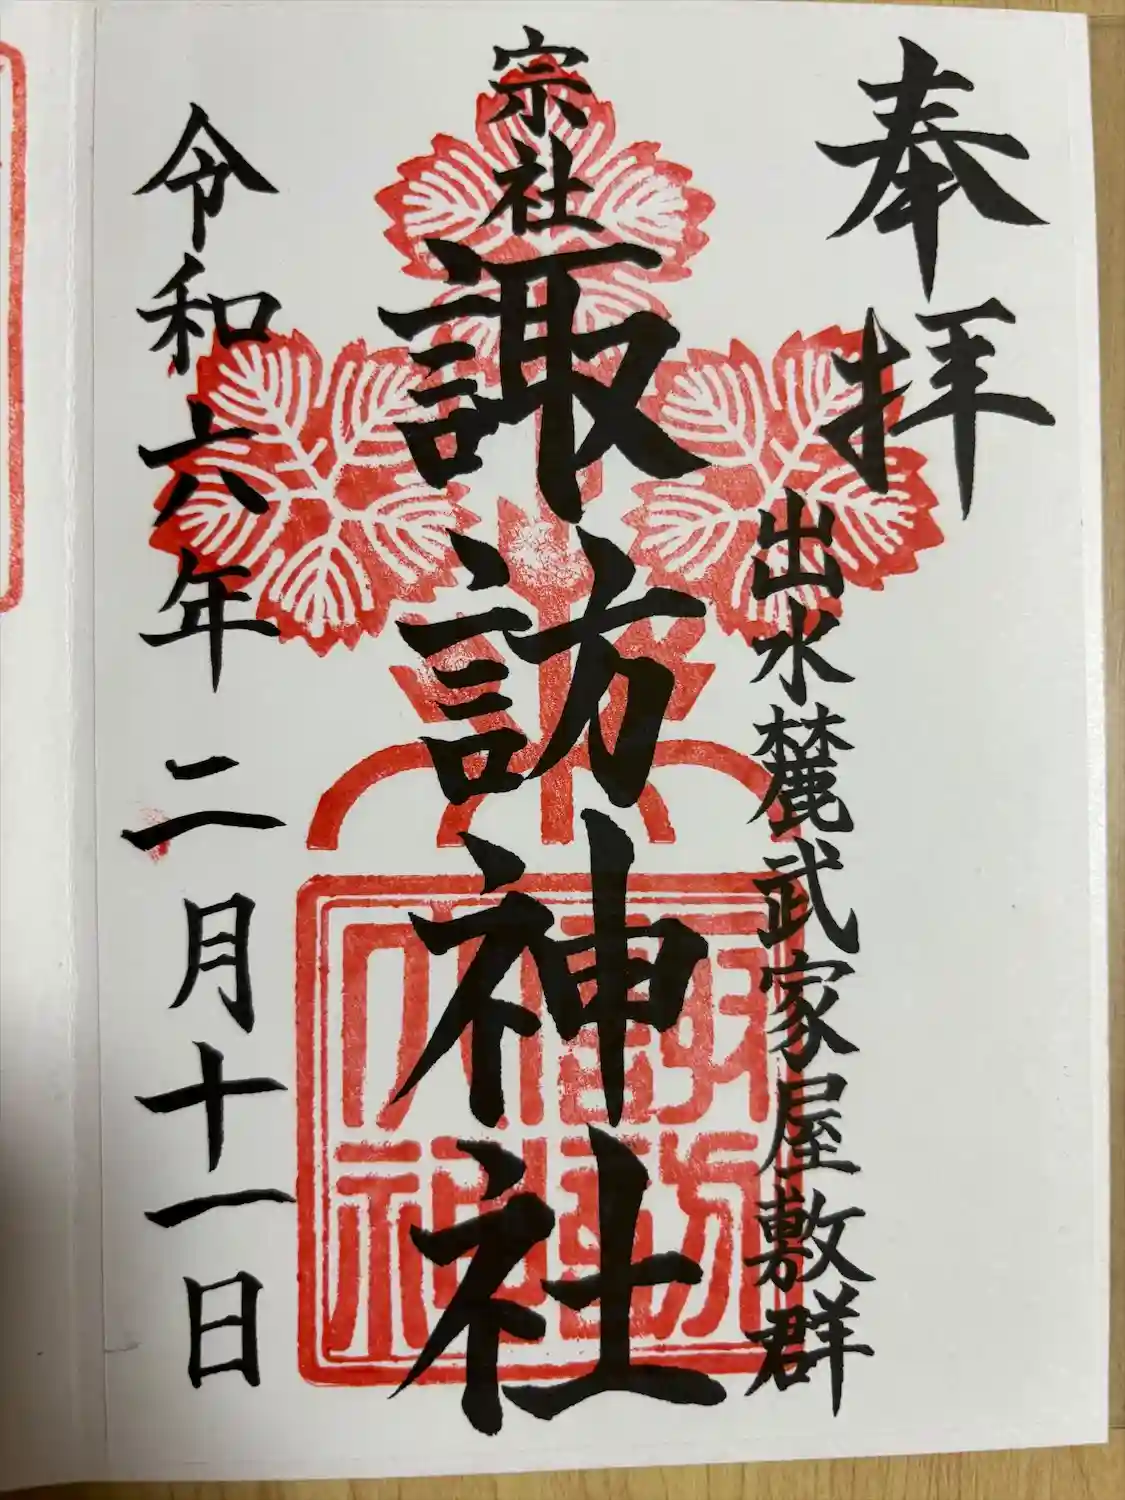 奉拝
出水麓武家屋敷群
宗社
諏訪神社
令和六年二月十一日
諏訪
大神